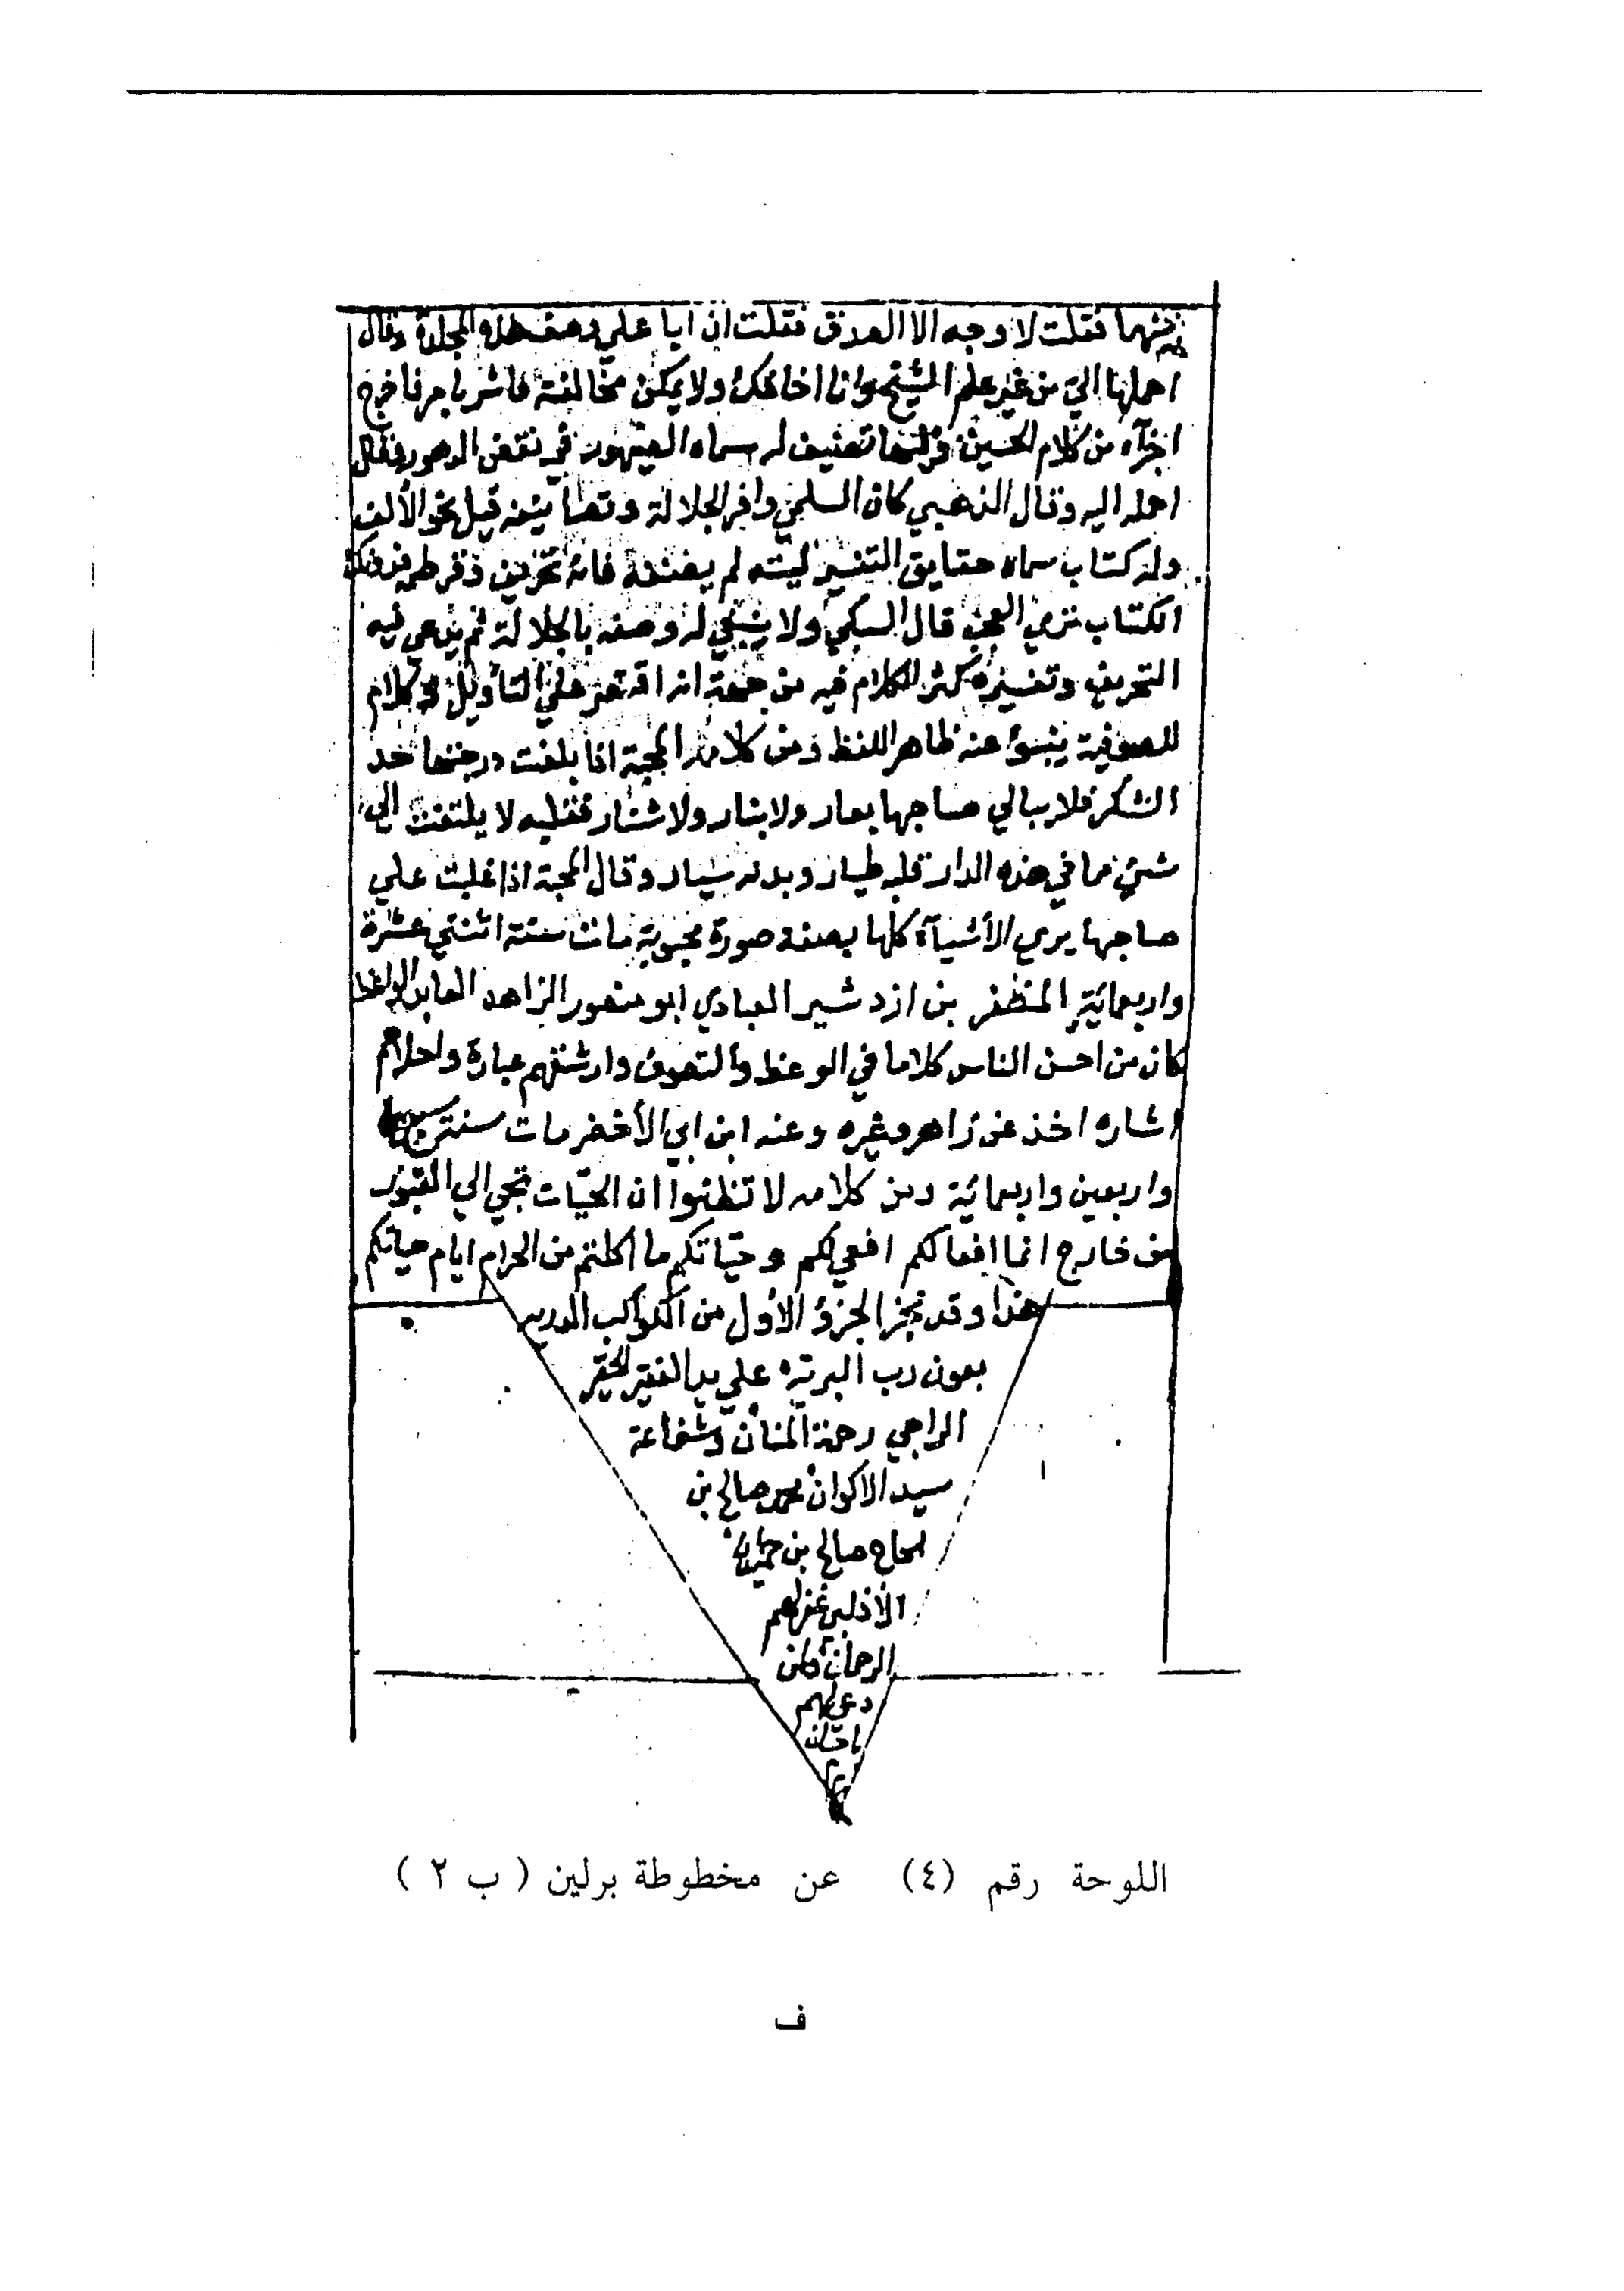 فقلت لا وجه الا الصدق فقلت ان ابا علي وصف هذه المجلدة وقال
احملها الي من غير علم الشيخ وانا اخافك ولا يمكن مخالفته فاشر بامر فاخرج
اجزآء من كلام الحسين وفيها تصنيف له سماه الصيهور في نقض الدهور وقال
احمله اليه وقال الذهبي كان السلمي وافر الجلالة وتصانيفه قيل نحو الألف
وله كتاب سماه حقايق التفسير ليته لم يصنفه فانه تحريف
الكتاب تري العجب قال السبكي ولا ينبغي له وصفه بالجلالة ثم يدعي فيه
التحريف وتفسيره كثر الكلام فيه من جهة انه اقتصر علي التأويل وكلام
للصوفية ينبوء عنه ظاهر اللفظ ومن كلامه المحبة اذا بلغت درجتها حد
الشكر فلا يبالي صاجها بعار ولا بنار ولا شنار فقلبه لا يلتفت الي
شئ مما في هذه الدار قلبه طيار وبدنه سيار وقال المحبة اذا غلبت علي
صاجها يري الأشيآء كلها بصفة صورة محبوبة مات سنة اثنتي عشرة
واربعمائة المظفر بن ازد شير العبادي ابو منصور الزاهد العابد الواعظ
كان من احسن الناس كلاما في الوعظ والتصوف وارشقهم عبارة واحلاهم
اشاره اخذ عن زاهر وغيره وعنه ابن ابي الأخضر مات سنة
واربعين واربعمائة ومن كلامه لا تظنوا ان الحيّات تجي الي القبور
من خارج انما افعالكم افعي لكم وحيّاتكم ما اكلتم من الحرام ايام حياتكم
هذا وقد نجز الجزؤ الأول من الكواكب الدريه
بعون رب البريّه علي يد الفقير الحقير
الراجي رحمة المنان وشفاعة
سيد الاكوان محمد صالح بن
الحاج صالح بن
غفر لهم
الرحمان
دعي لهم
اللوحة رقم (٤) عن مخطوطة برلين ( ب ٢ )
ف